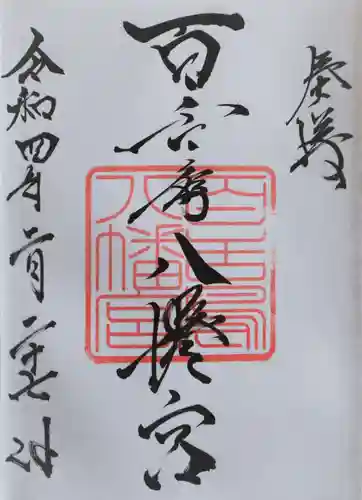 奉拝
百舌鳥八幡宮
百舌鳥
八幡宮
令和四年二月二十七日